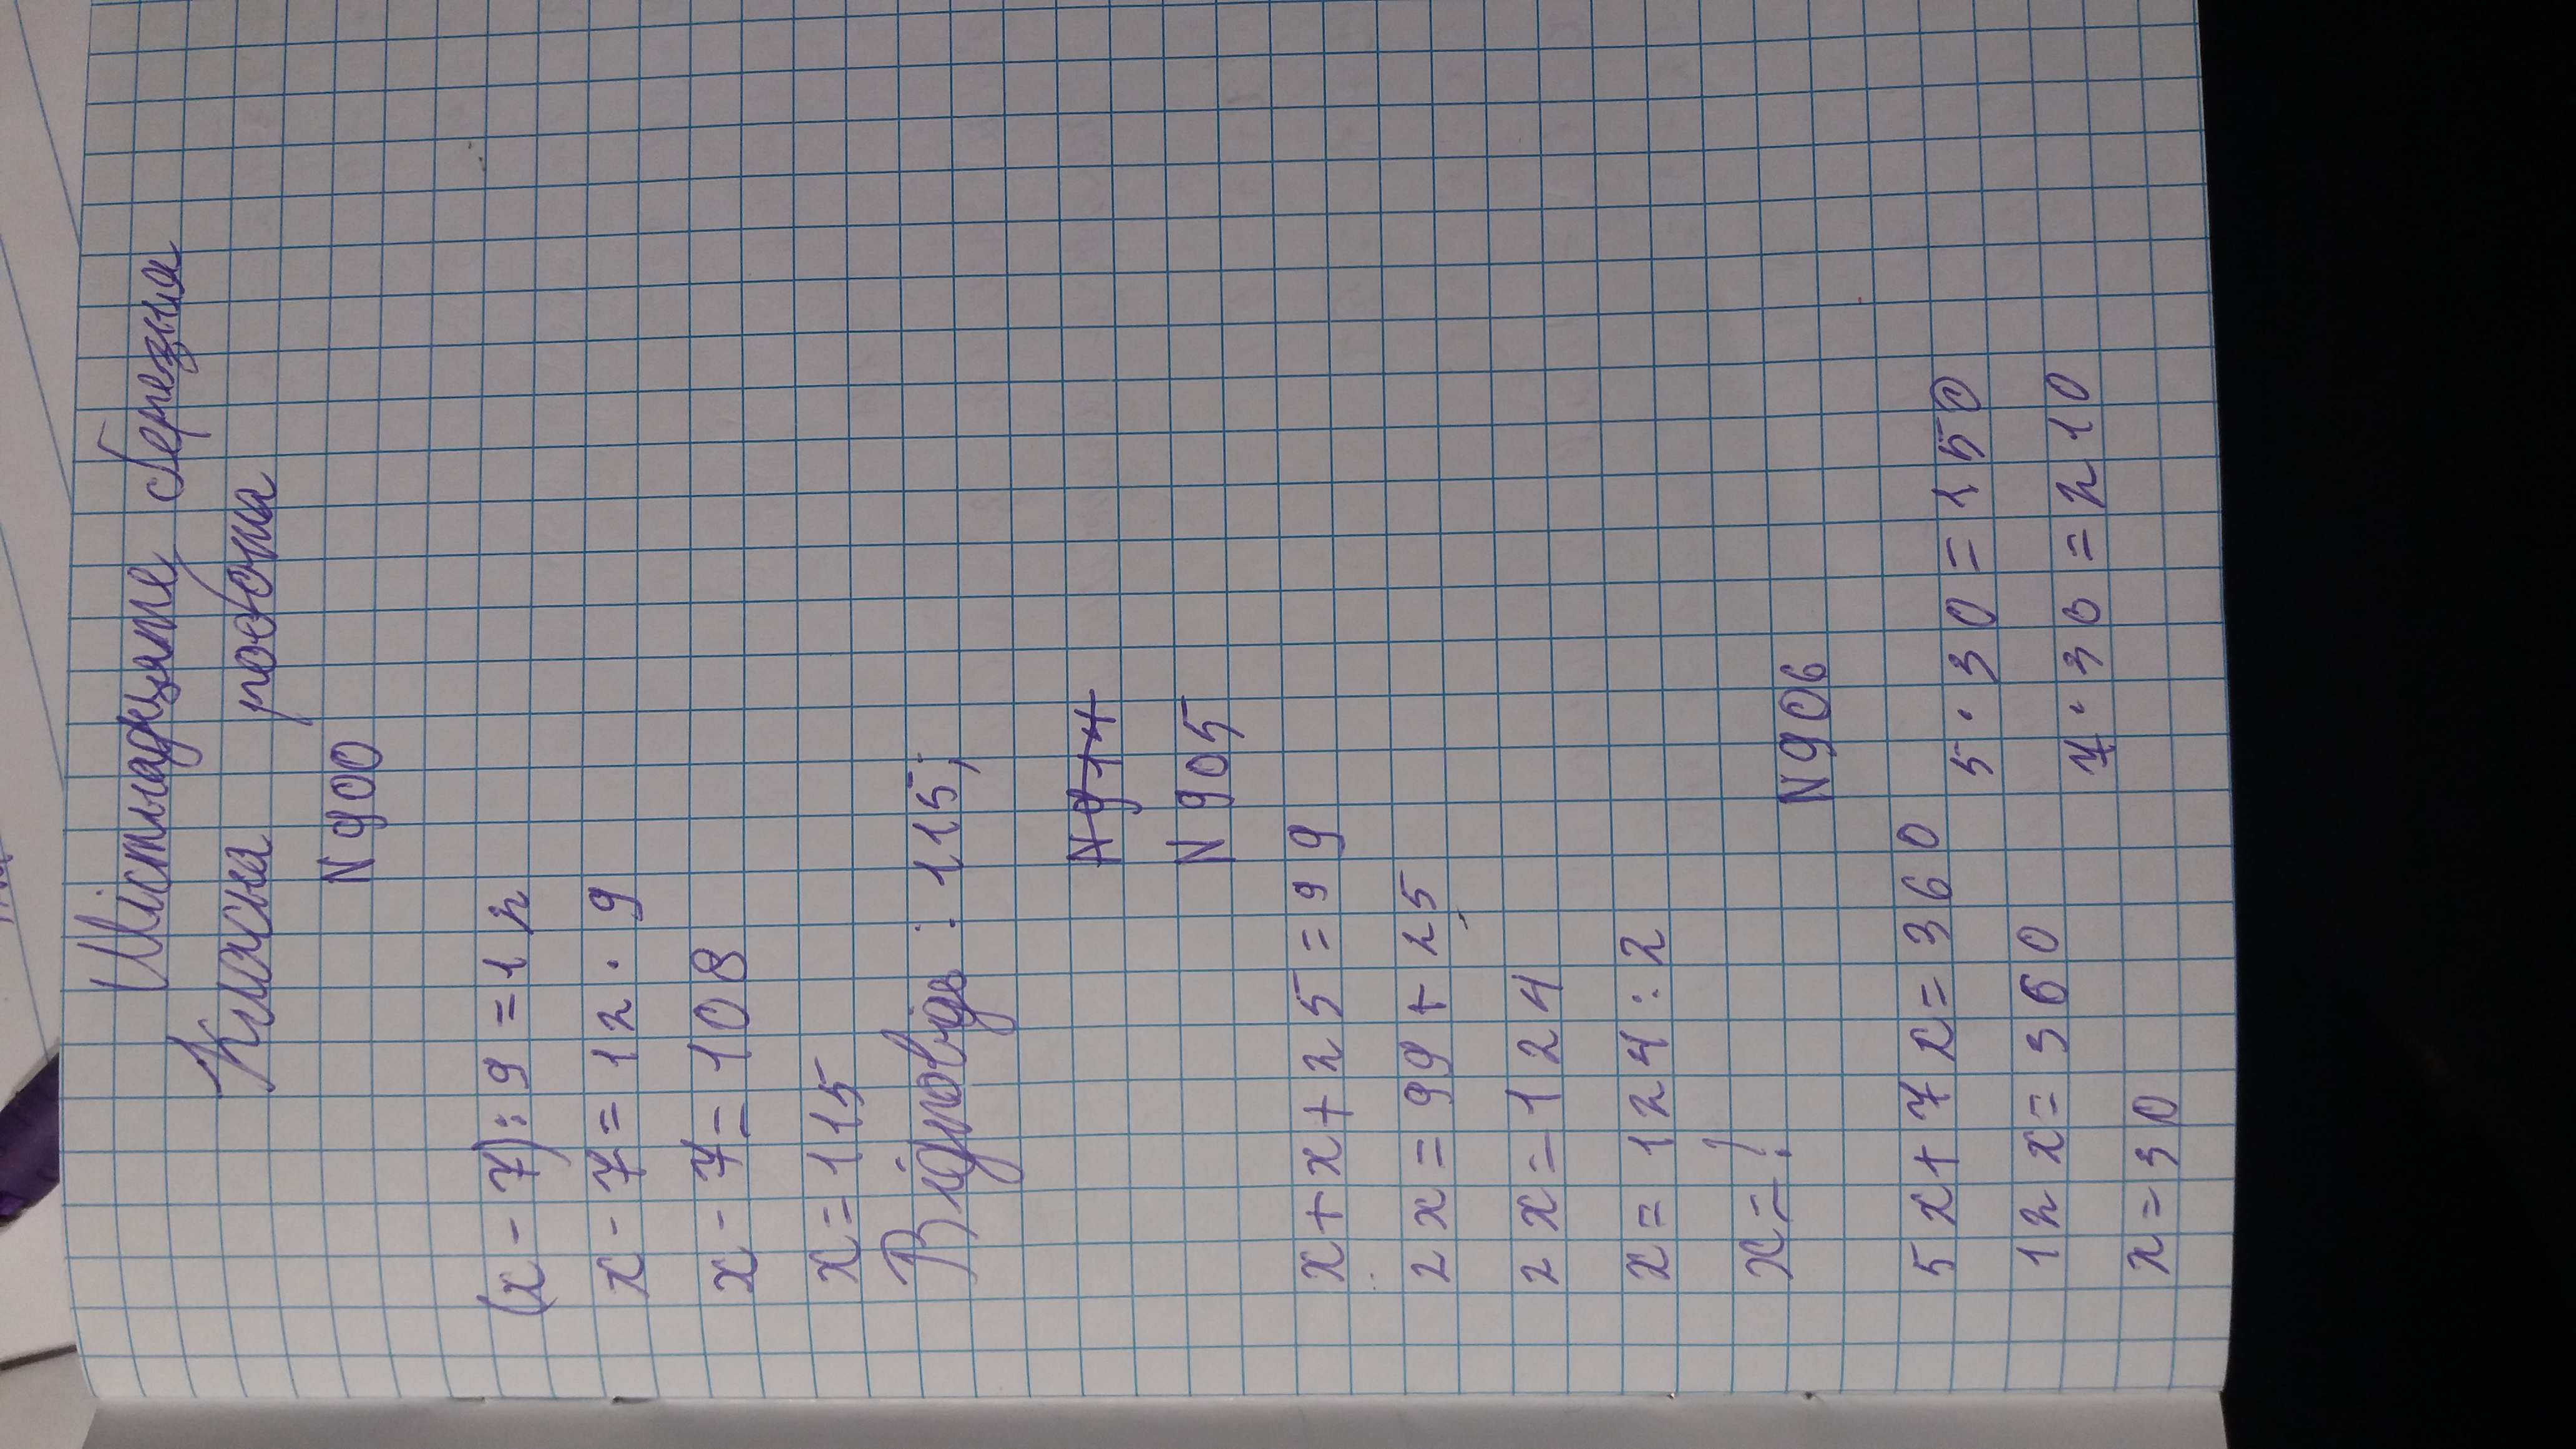 Шістнадцяте березня
Класна робота
N 900
(x - 7) : 9 = 12
x - 7 = 12 · 9
x - 7 = 108
x = 115
Відповідь : 115;
N 914
N 905
x + x + 25 = 99
2x = 99 + 25
2x = 124
x = 124 : 2
x = !
N 906
5x + 7x = 360
5 · 30 = 150
12x = 360
7 · 30 = 210
x = 30